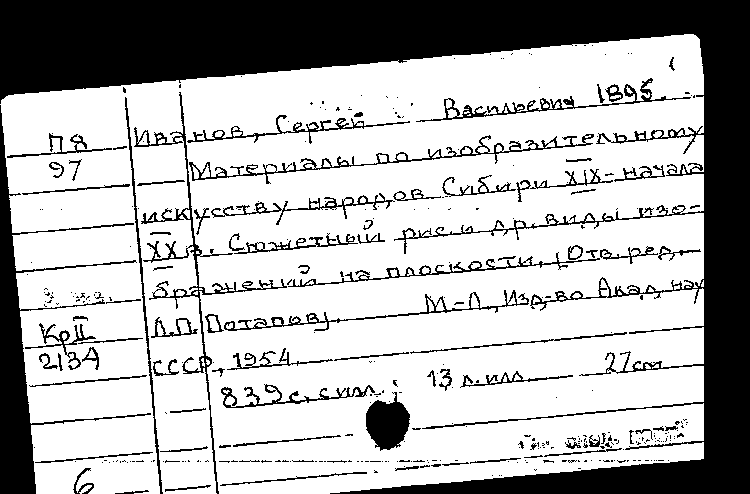 П8 Иванов, Сергей Васильевич 1895.
97 Материалы по изобразительному
искусству народов Сибири XIX - начала
XX в. Сюжетный рис. и др. виды изо-
бражений на плоскости. [Отв. ред.
КрII Л.П. Потапов]. М.-Л., Изд-во Акад. наук
2134 СССР, 1954.
839 с. с илл.; 13 л. илл. 27 см
6